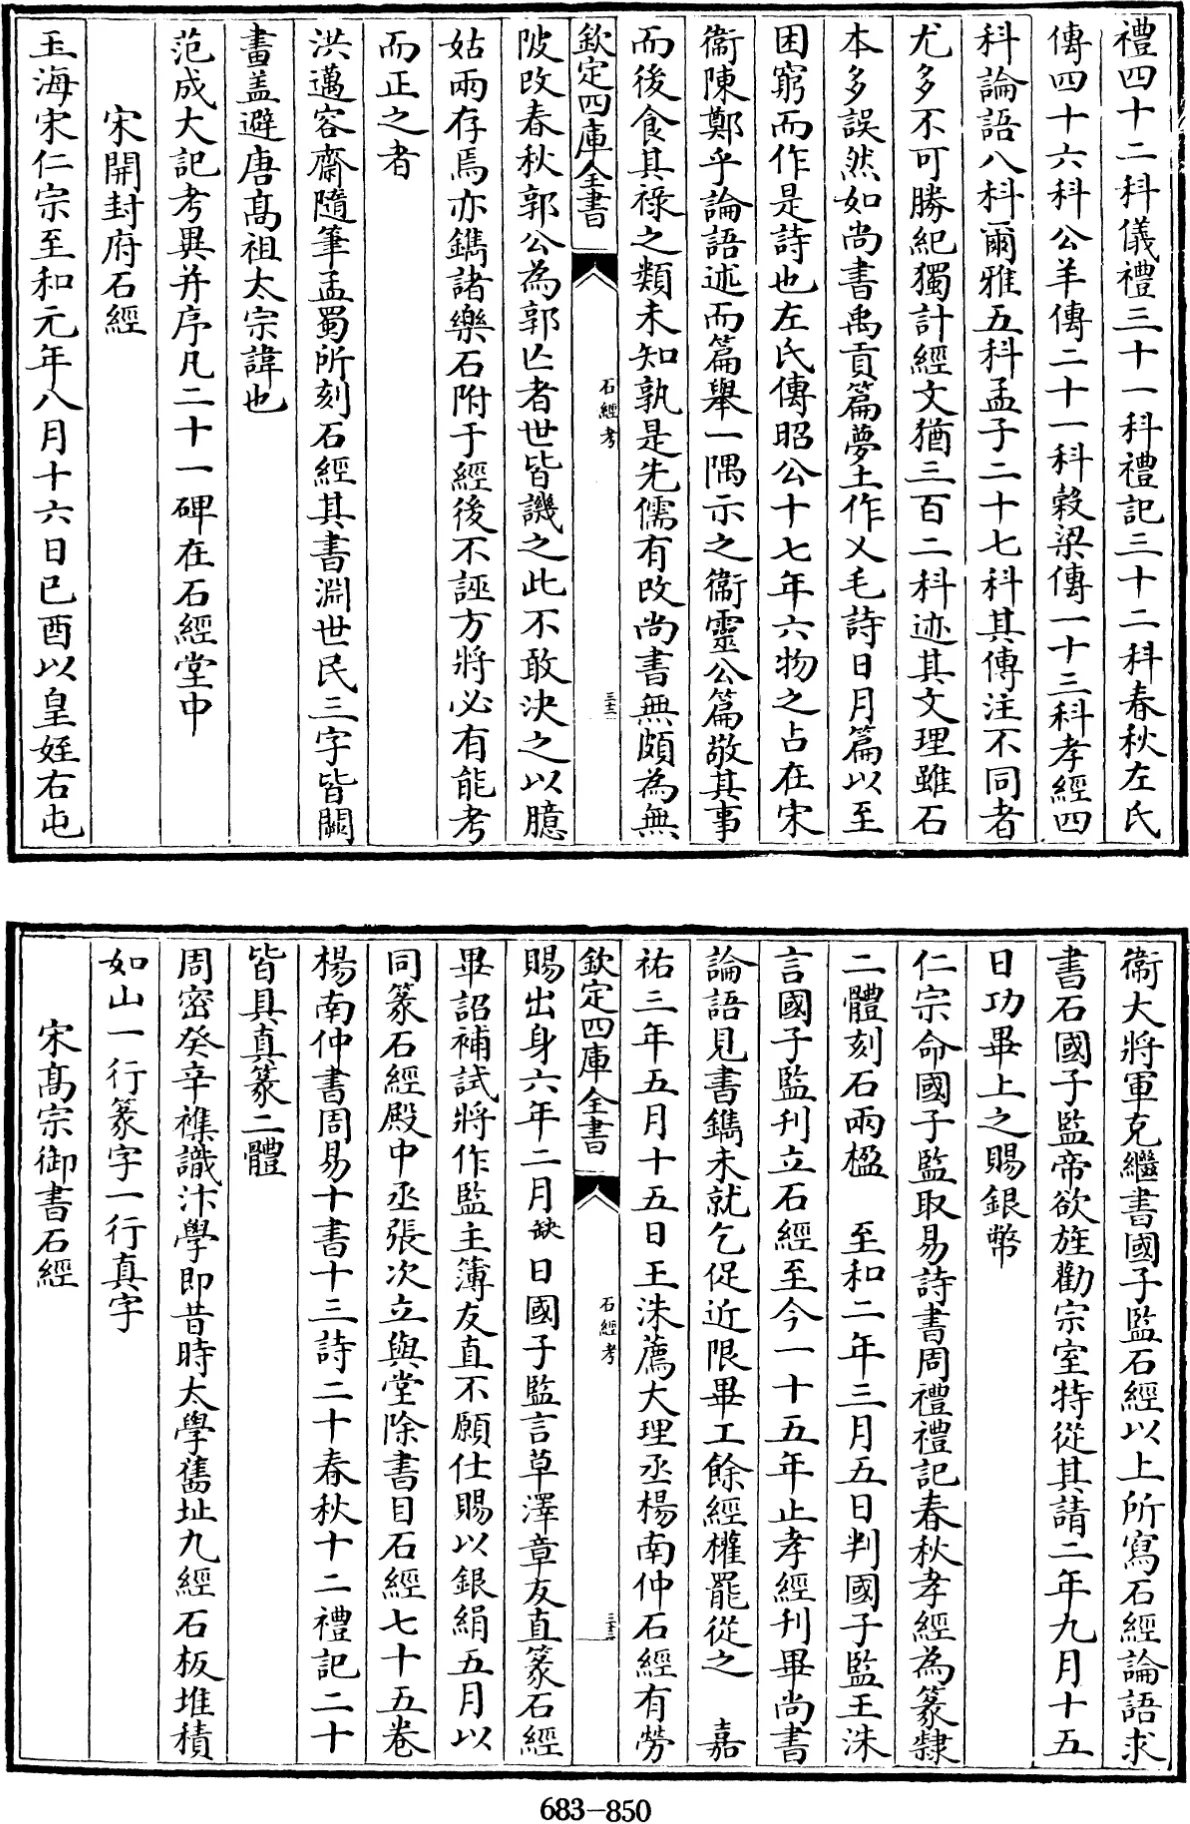 禮四十二科儀禮三十一科禮記三十二科春秋左氏
傳四十六科公羊傳二十一科穀梁傳一十三科孝經四
科論語八科爾雅五科孟子二十七科其傳注不同者
尤多不可勝紀獨計經文猶三百二科迹其文理雖石
本多誤然如尚書禹貢篇夢土作乂毛詩日月篇以至
困窮而作是詩也左氏傳昭公十七年六物之占在宋
衞陳鄭乎論語述而篇舉一隅示之衞靈公篇敬其事
而後食其祿之類未知孰是先儒有改尚書無頗為無
欽定四庫全書
石經考
三十二
陂改春秋郭公為郭亾者世皆譏之此不敢決之以臆
姑兩存焉亦鐫諸樂石附于經後不誣方將必有能考
而正之者
洪邁容齋隨筆孟蜀所刻石經其書淵世民三字皆闕
畫盖避唐髙祖太宗諱也
范成大記考異并序凡二十一碑在石經堂中
宋開封府石經
玉海宋仁宗至和元年八月十六日己酉以皇姪右屯
衞大將軍克繼書國子監石經以上所寫石經論語求
書石國子監帝欲旌勸宗室特從其請二年九月十五
日功畢上之賜銀幣
仁宗命國子監取易詩書周禮禮記春秋孝經為篆隸
二體刻石兩楹 至和二年三月五日判國子監王洙
言國子監刊立石經至今一十五年止孝經刊畢尚書
論語見書鐫未就乞促近限畢工餘經權罷從之 嘉
祐三年五月十五日王洙薦大理丞楊南仲石經有勞
欽定四庫全書
石經考
三十三
賜出身六年二月缺日國子監言草澤章友直篆石經
畢詔補試將作監主簿友直不願仕賜以銀絹五月以
同篆石經殿中丞張次立與堂除書目石經七十五卷
楊南仲書周易十書十三詩二十春秋十二禮記二十
皆具真篆二體
周密癸辛襍識汴學即昔時太學舊址九經石板堆積
如山一行篆字一行真字
宋髙宗御書石經
683-850